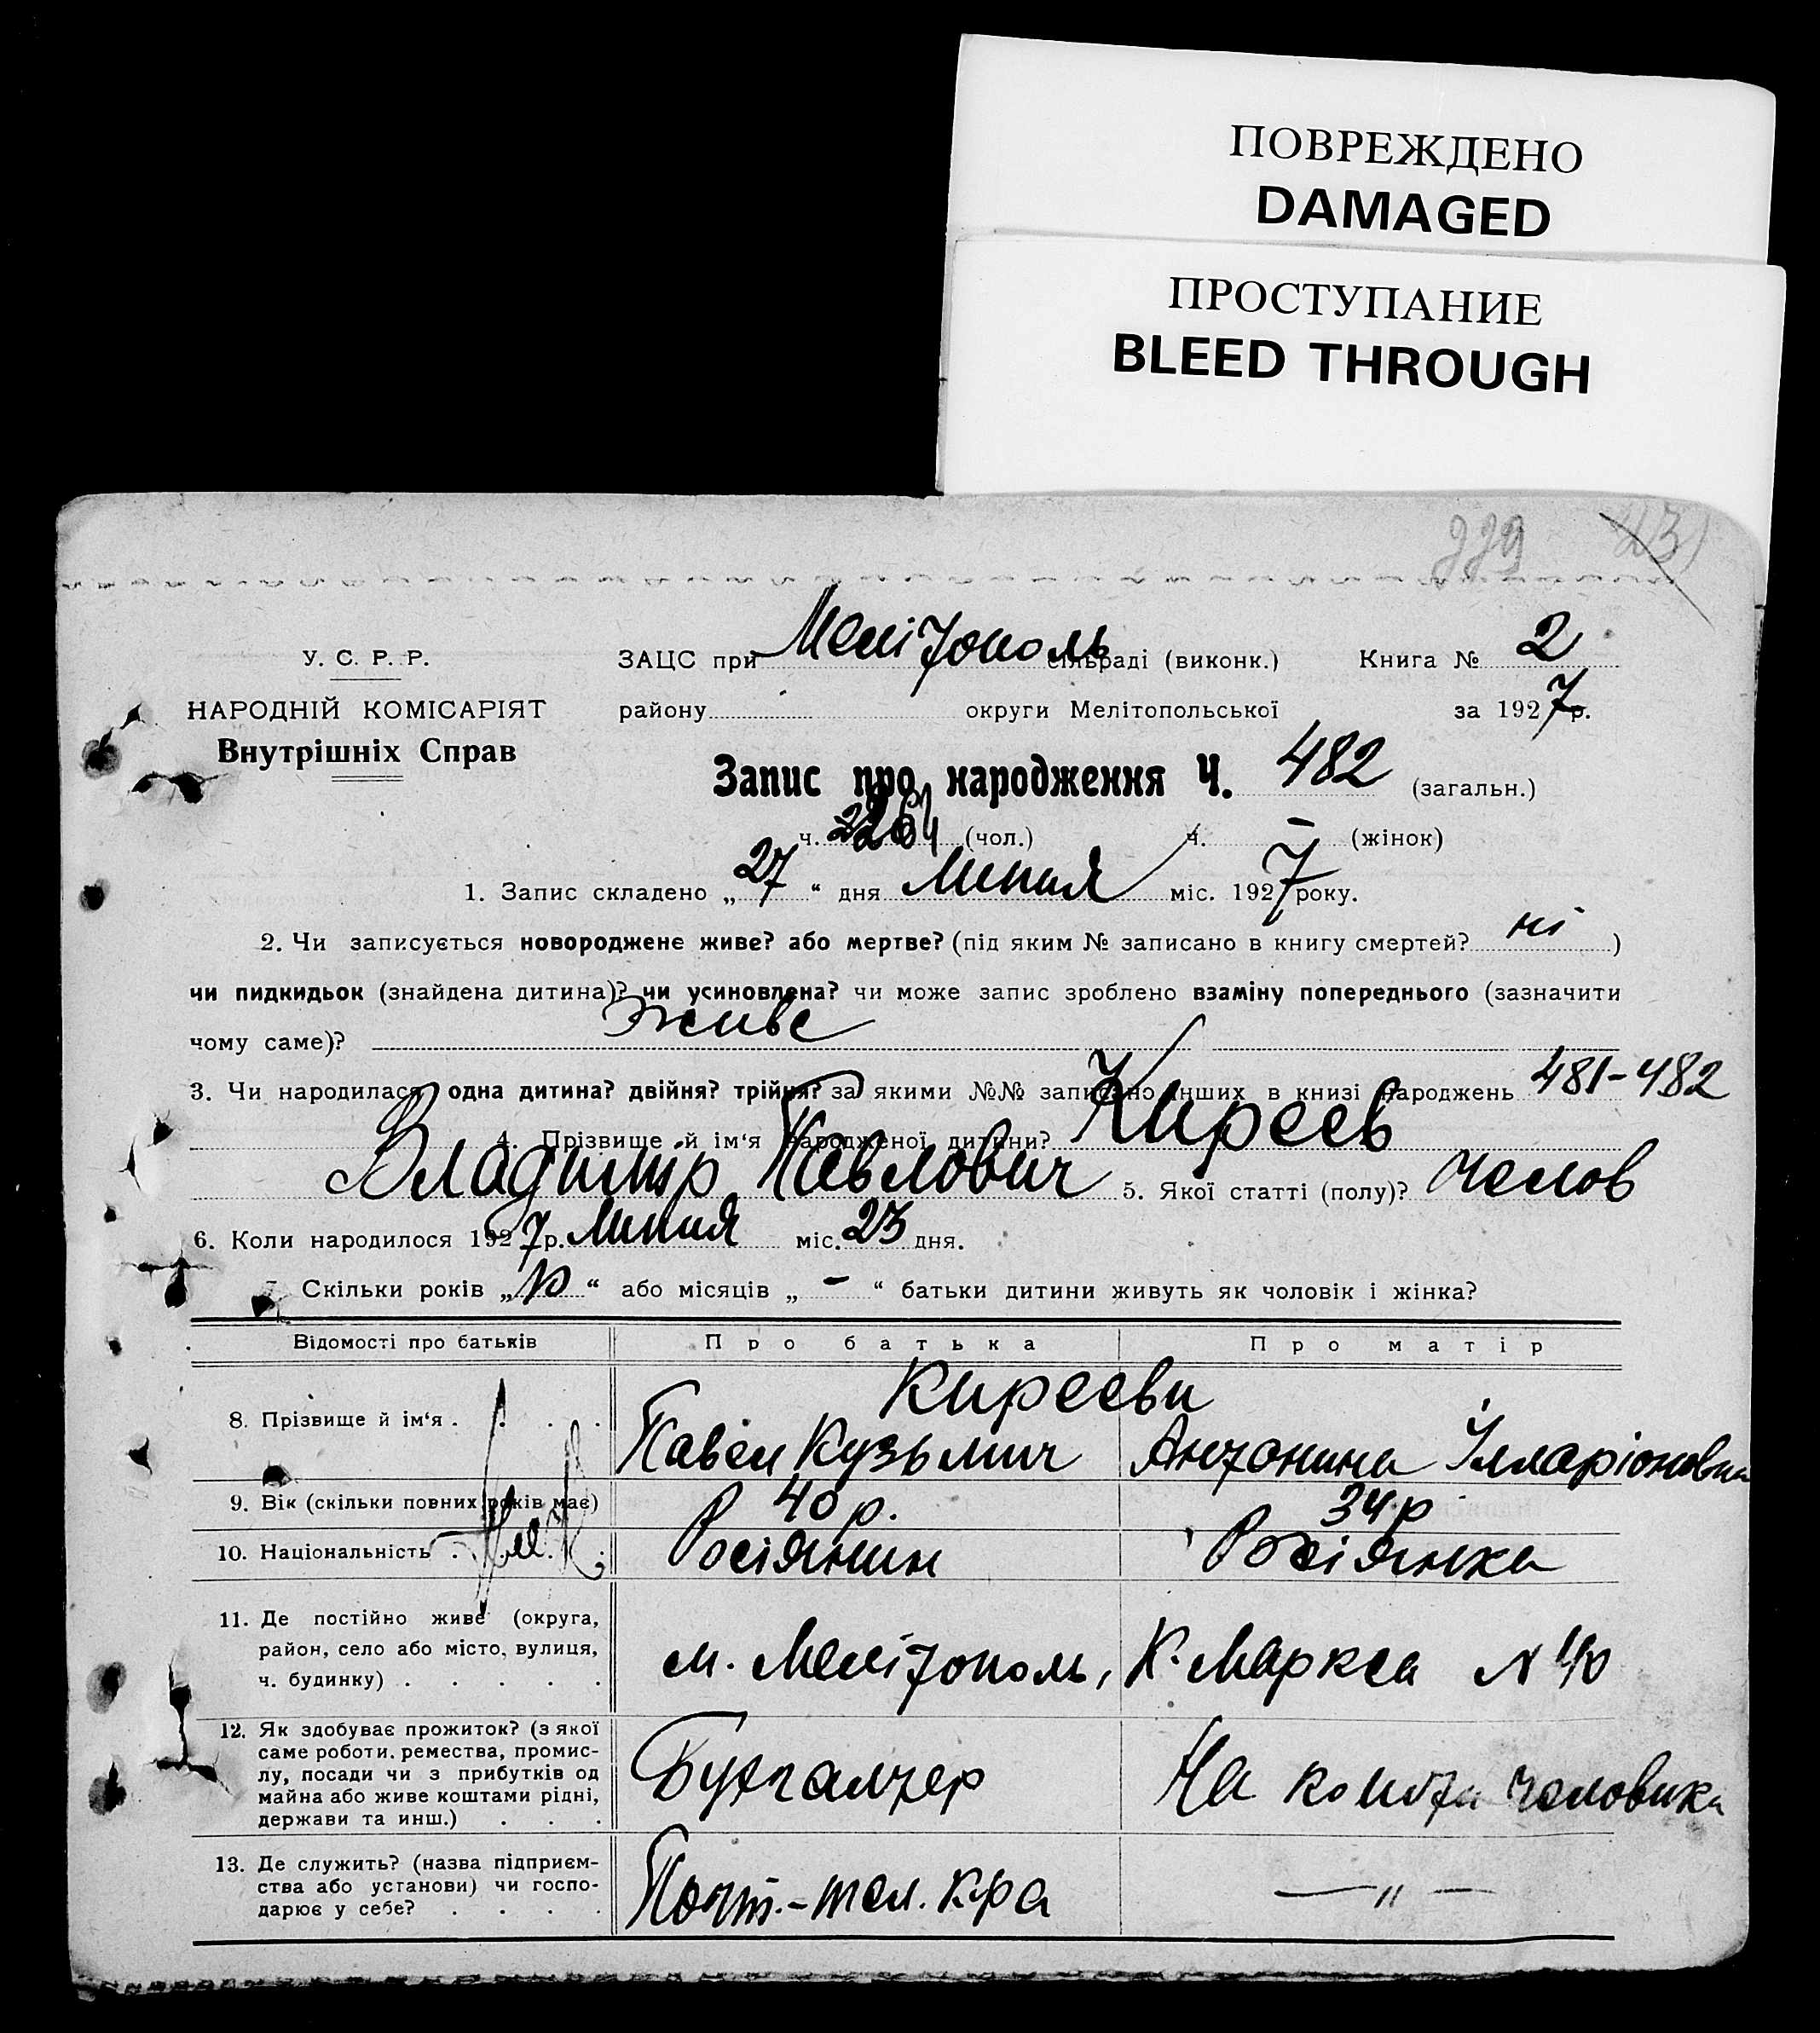 ПОВРЕЖДЕНО
DAMAGED
ПРОСТУПАНИЕ
BLEED THROUGH
229 231
У. С. Р. Р.
НАРОДНІЙ КОМІСАРІЯТ
Внутрішніх Справ
ЗАЦС при Мелітополь сільраді (виконк.) Книга № 2
району округи Мелітопольської за 1927 р.
Запис про народження Ч. 482 (загальн.)
ч. (чол.) ч. — (жінок)
1. Запис складено „27“ дня липня міс. 1927 року.
2. Чи записується новороджене живе? або мертве? (під яким № записано в книгу смертей? ні )
чи пидкидьок (знайдена дитина)? чи усиновлена? чи може запис зроблено взаміну попереднього (зазначити
чому саме)? живе
3. Чи народилася одна дитина? двійня? трійня? за якими №№ записано інших в книзі народжень 481-482
4. Прізвище й ім‘я народженої дитини? Киреев
Владимір Павлович 5. Якої статті (полу)? челов
6. Коли народилося 1927 р. липня міс. 23 дня.
7. Скільки років „10“ або місяців „ — “ батьки дитини живуть як чоловік і жінка?
Відомості про батьків Про батька Про матір
Киреєви
8. Прізвище й ім‘я . . . . Павел Кузьмич Антонина Ілларіоновна
9. Вік (скільки повних років має) 40 р. 34 р
10. Національність . . . Росіянин Росіянка
11. Де постійно живе (округа,
район, село або місто, вулиця,
ч. будинку) . . . . .
м. Мелітополь, К. Маркса № 40
12. Як здобуває прожиток? (з якої
саме роботи, ремества, промис-
лу, посади чи з прибутків од
майна або живе коштами рідні,
держави та инш.) . . .
Бухгалтер На кошти человика
13. Де служить? (назва підприєм-
ства або установи) чи госпо-
дарює у себе? . . . .
Почт.-тел. к-ра — „ —